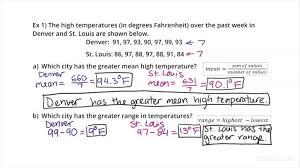 Ex 1) The high temperatures (in degrees Fahrenheit) over the past week in
Denver and St. Louis are shown below.
Denver: 91, 97, 93, 90, 97, 99, 93 ← 7
St. Louis: 86, 97, 88, 97, 88, 91, 84 ← 7
a) Which city has the greater mean high temperature?
mean = sum of values / number of values
Denver mean = 660/7 = 94.3°F
St. Louis mean = 631/7 = 90.1°F
Denver has the greater mean high temperature.
b) Which city has the greater range in temperatures?
range = highest − lowest
Denver
99-90 = 9°F
St. Louis
97-84 = 13°F
St. Louis has the
greater range.